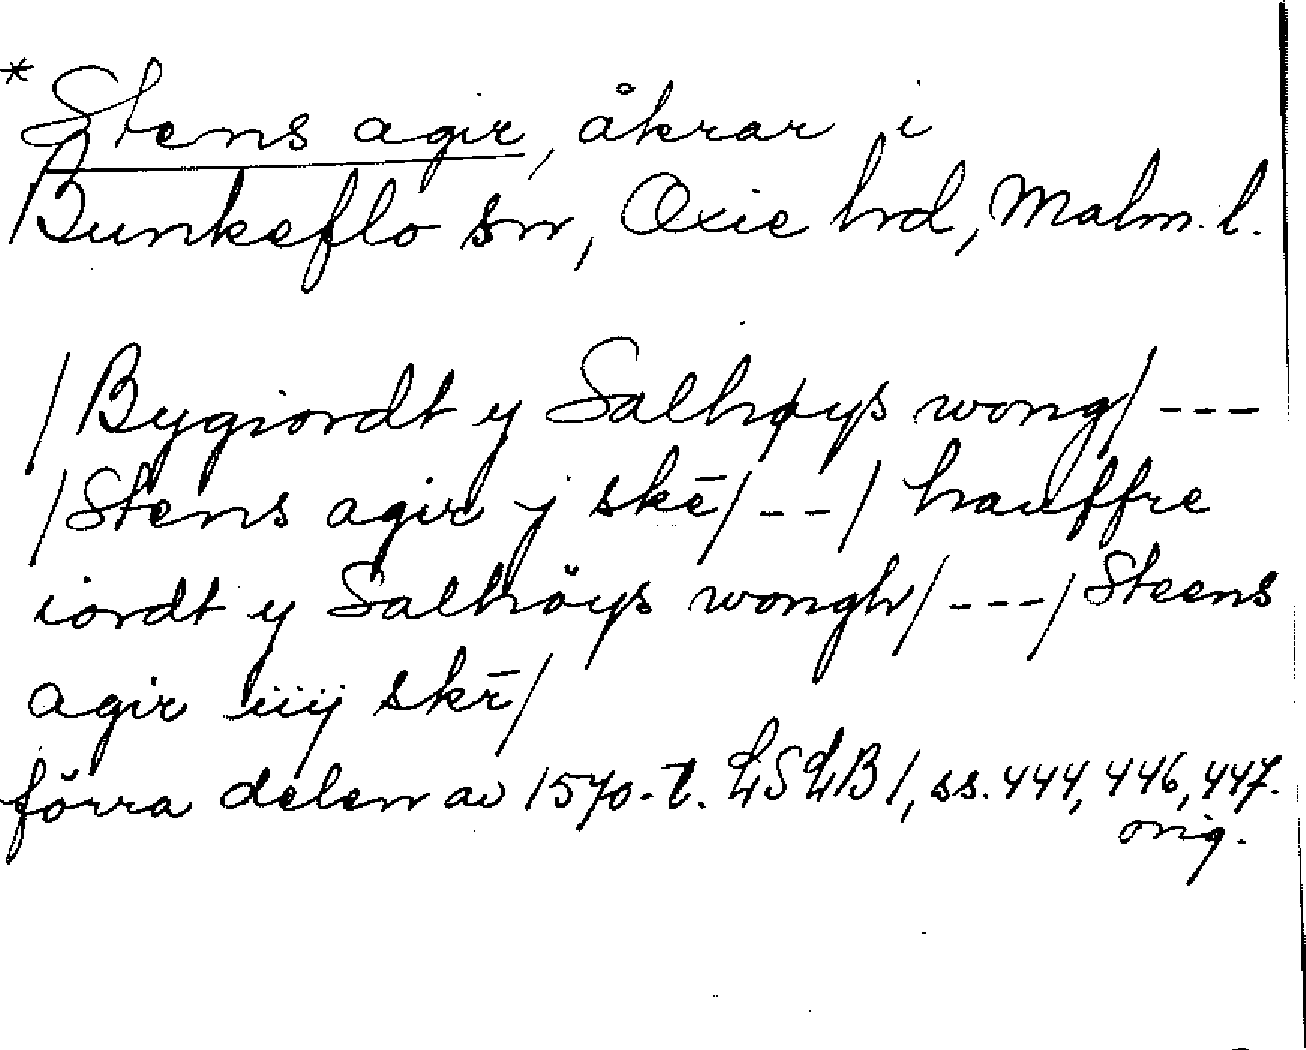 * Stens agir, åkrar i
Bunkeflo sn, Oxie hrd, Malm. l.
/Bygiordt y Salhøys wong/ ---
/Stens agir j skē/ -- / hauffre
iordt y Salhöys wongh/ --- / Steens
agir iiij skē/
förra delen av 1570-t. LSLB 1, ss. 444, 446, 447.
orig.